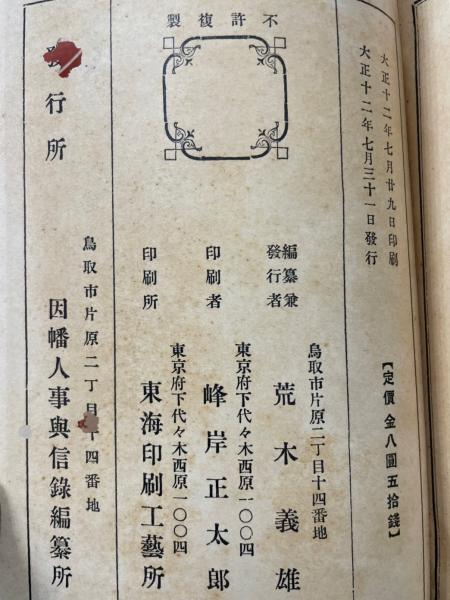 不許複製
大正十二年七月廿九日印刷
大正十二年七月三十一日發行
【定價金八圓五拾錢】
編纂兼
發行者
鳥取市片原二丁目十四番地
荒木義雄
印刷者
東京府下代々木西原一〇〇四
峰岸正太郎
印刷所
東京府下代々木西原一〇〇四
東海印刷工藝所
發行所
鳥取市片原二丁目十四番地
因幡人事興信錄編纂所